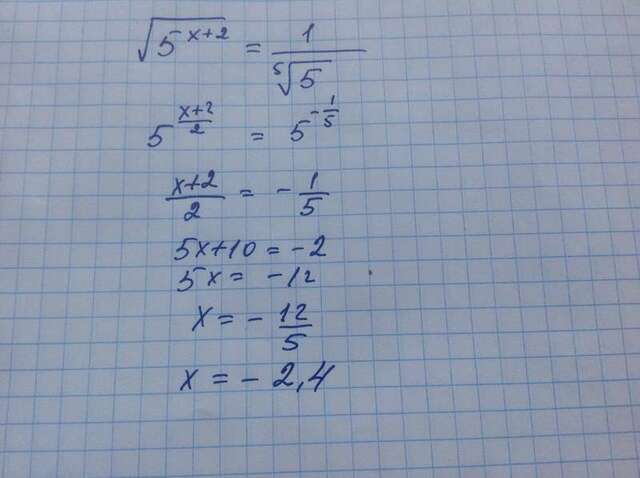 √5^(x+2) = 1/⁵√5
5^((x+2)/2) = 5^(-1/5)
(x+2)/2 = -1/5
5x+10 = -2
5x = -12
x = -12/5
x = -2,4